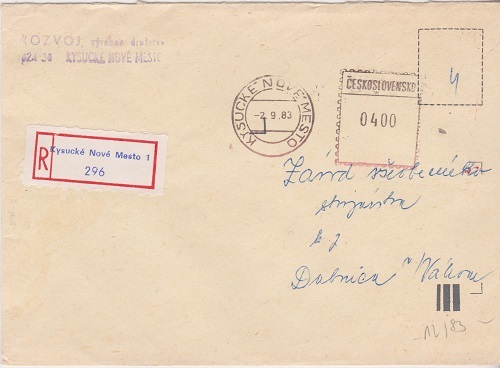 ROZVOJ, výrobné družstvo
024 30 KYSUCKÉ NOVÉ MESTO
4
KYSUCKÉ NOVÉ MESTO
-2.9.83
ČESKOSLOVENSKO
0400
R Kysucké Nové Mesto 1
296
Závod všeobecného
strojárstva
Dubnica n Váhom
12/83